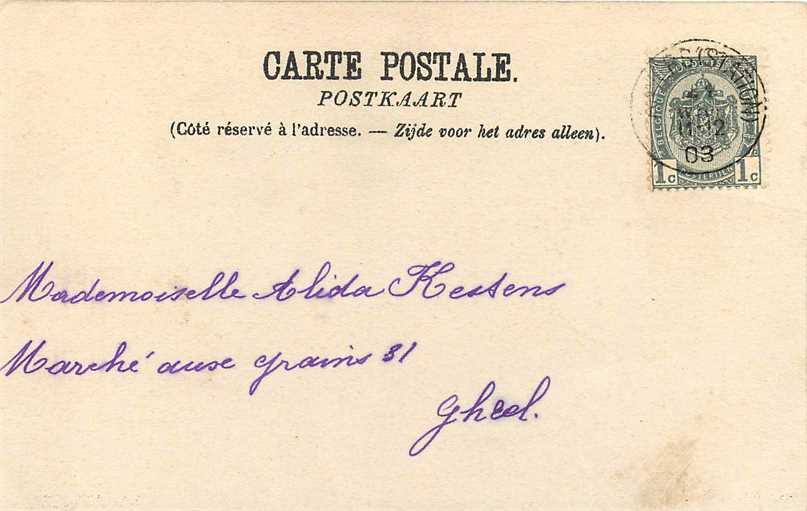 CARTE POSTALE.
POSTKAART
(Côté réservé à l'adresse. — Zijde voor het adres alleen).
(STATION)
11-12
03
1c 1c
Mademoiselle Alida Kestens
Marché aux grains 31
Gheel.